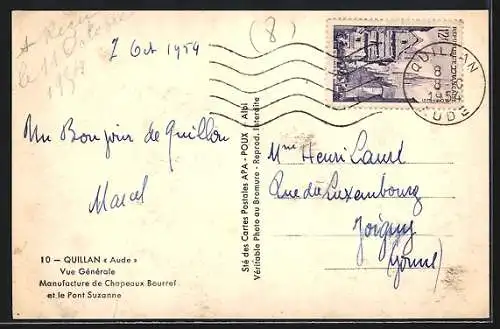 Reçu
le 11 Octobre
1954
7 Oct 1954
(8)
Un Bonjour de Quillan
Marcel
10 — QUILLAN « Aude »
Vue Générale
Manufacture de Chapeaux Bourrel
et le Pont Suzanne
Sté des Cartes Postales APA - POUX - Albi
Véritable Photo au Bromure - Reprod. Interdite
QUILLAN
8
1954
AUDE
12F
Mme Henri Laurel
Rue du Luxembourg
Joigny
(Yonne)